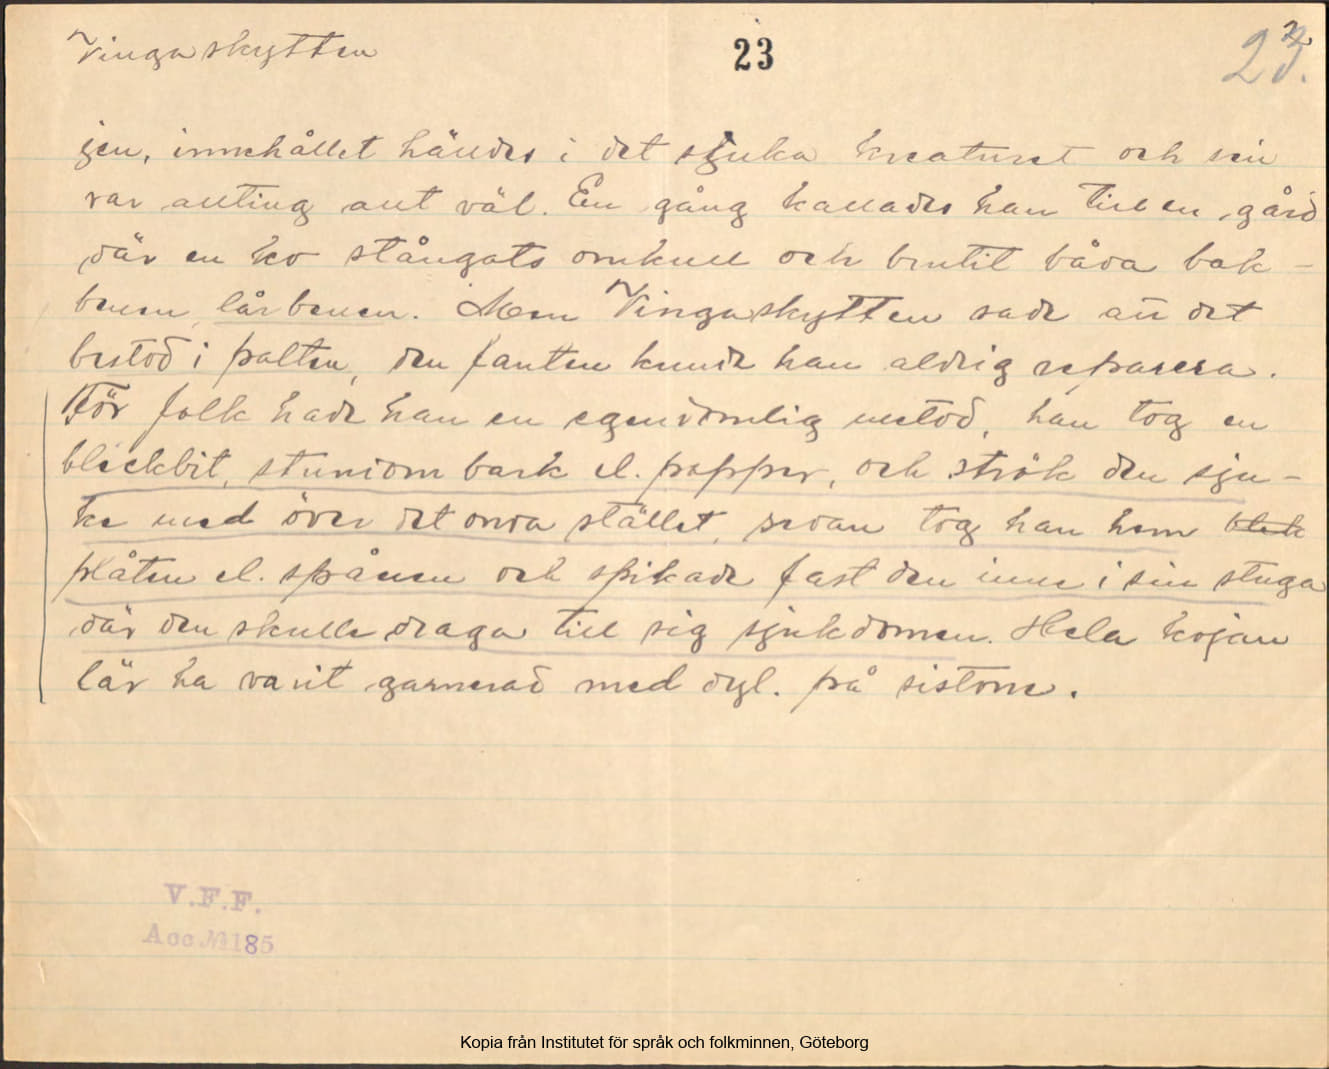 Vingaskytten 23 23.
jen, innehållet hälldes i det sjuka kreaturet och sen
var allting allt väl. En gång kallades han till en gård
där en ko stångats omkull och brutit båda bak-
benen, lårbenen. Men Vingaskytten sade att det
bestod i palten, den fanten kunde han aldrig reparera.
För folk hade han en egendomlig metod, han tog en
bleckbit, stundom bark el. papper, och strök den sju-
ke med över det onda stället, sedan tog han hem bleck
plåten el. spånen och spikade fast den inne i sin stuga
där den skulle draga till sig sjukdomen. Hela kojan
lär ha varit garnerad med dyl. på sistone.
V.F.F.
Acc. № 185
Kopia från Institutet för språk och folkminnen, Göteborg